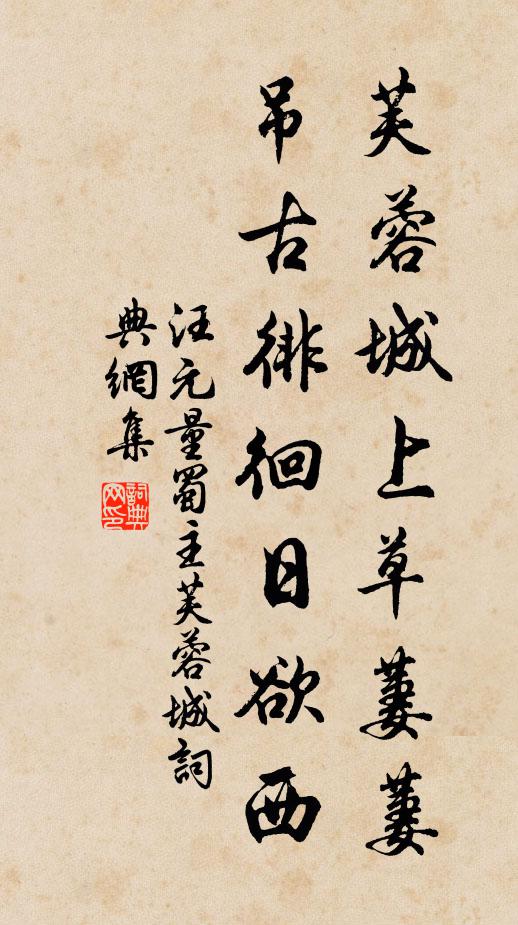 芙蓉城上草萋萋
吊古徘徊日欲西
汪元量蜀主芙蓉城詞
典網集
詞典
网印